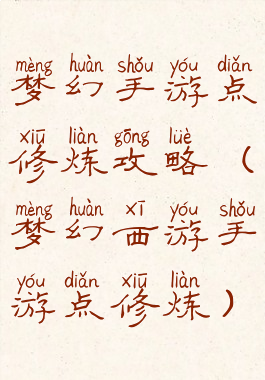 mèng huàn shǒu yóu diǎn
梦幻手游点
xiū liàn gōng lüè
修炼攻略（
mèng huàn xī yóu shǒu
梦幻西游手
yóu diǎn xiū liàn
游点修炼）